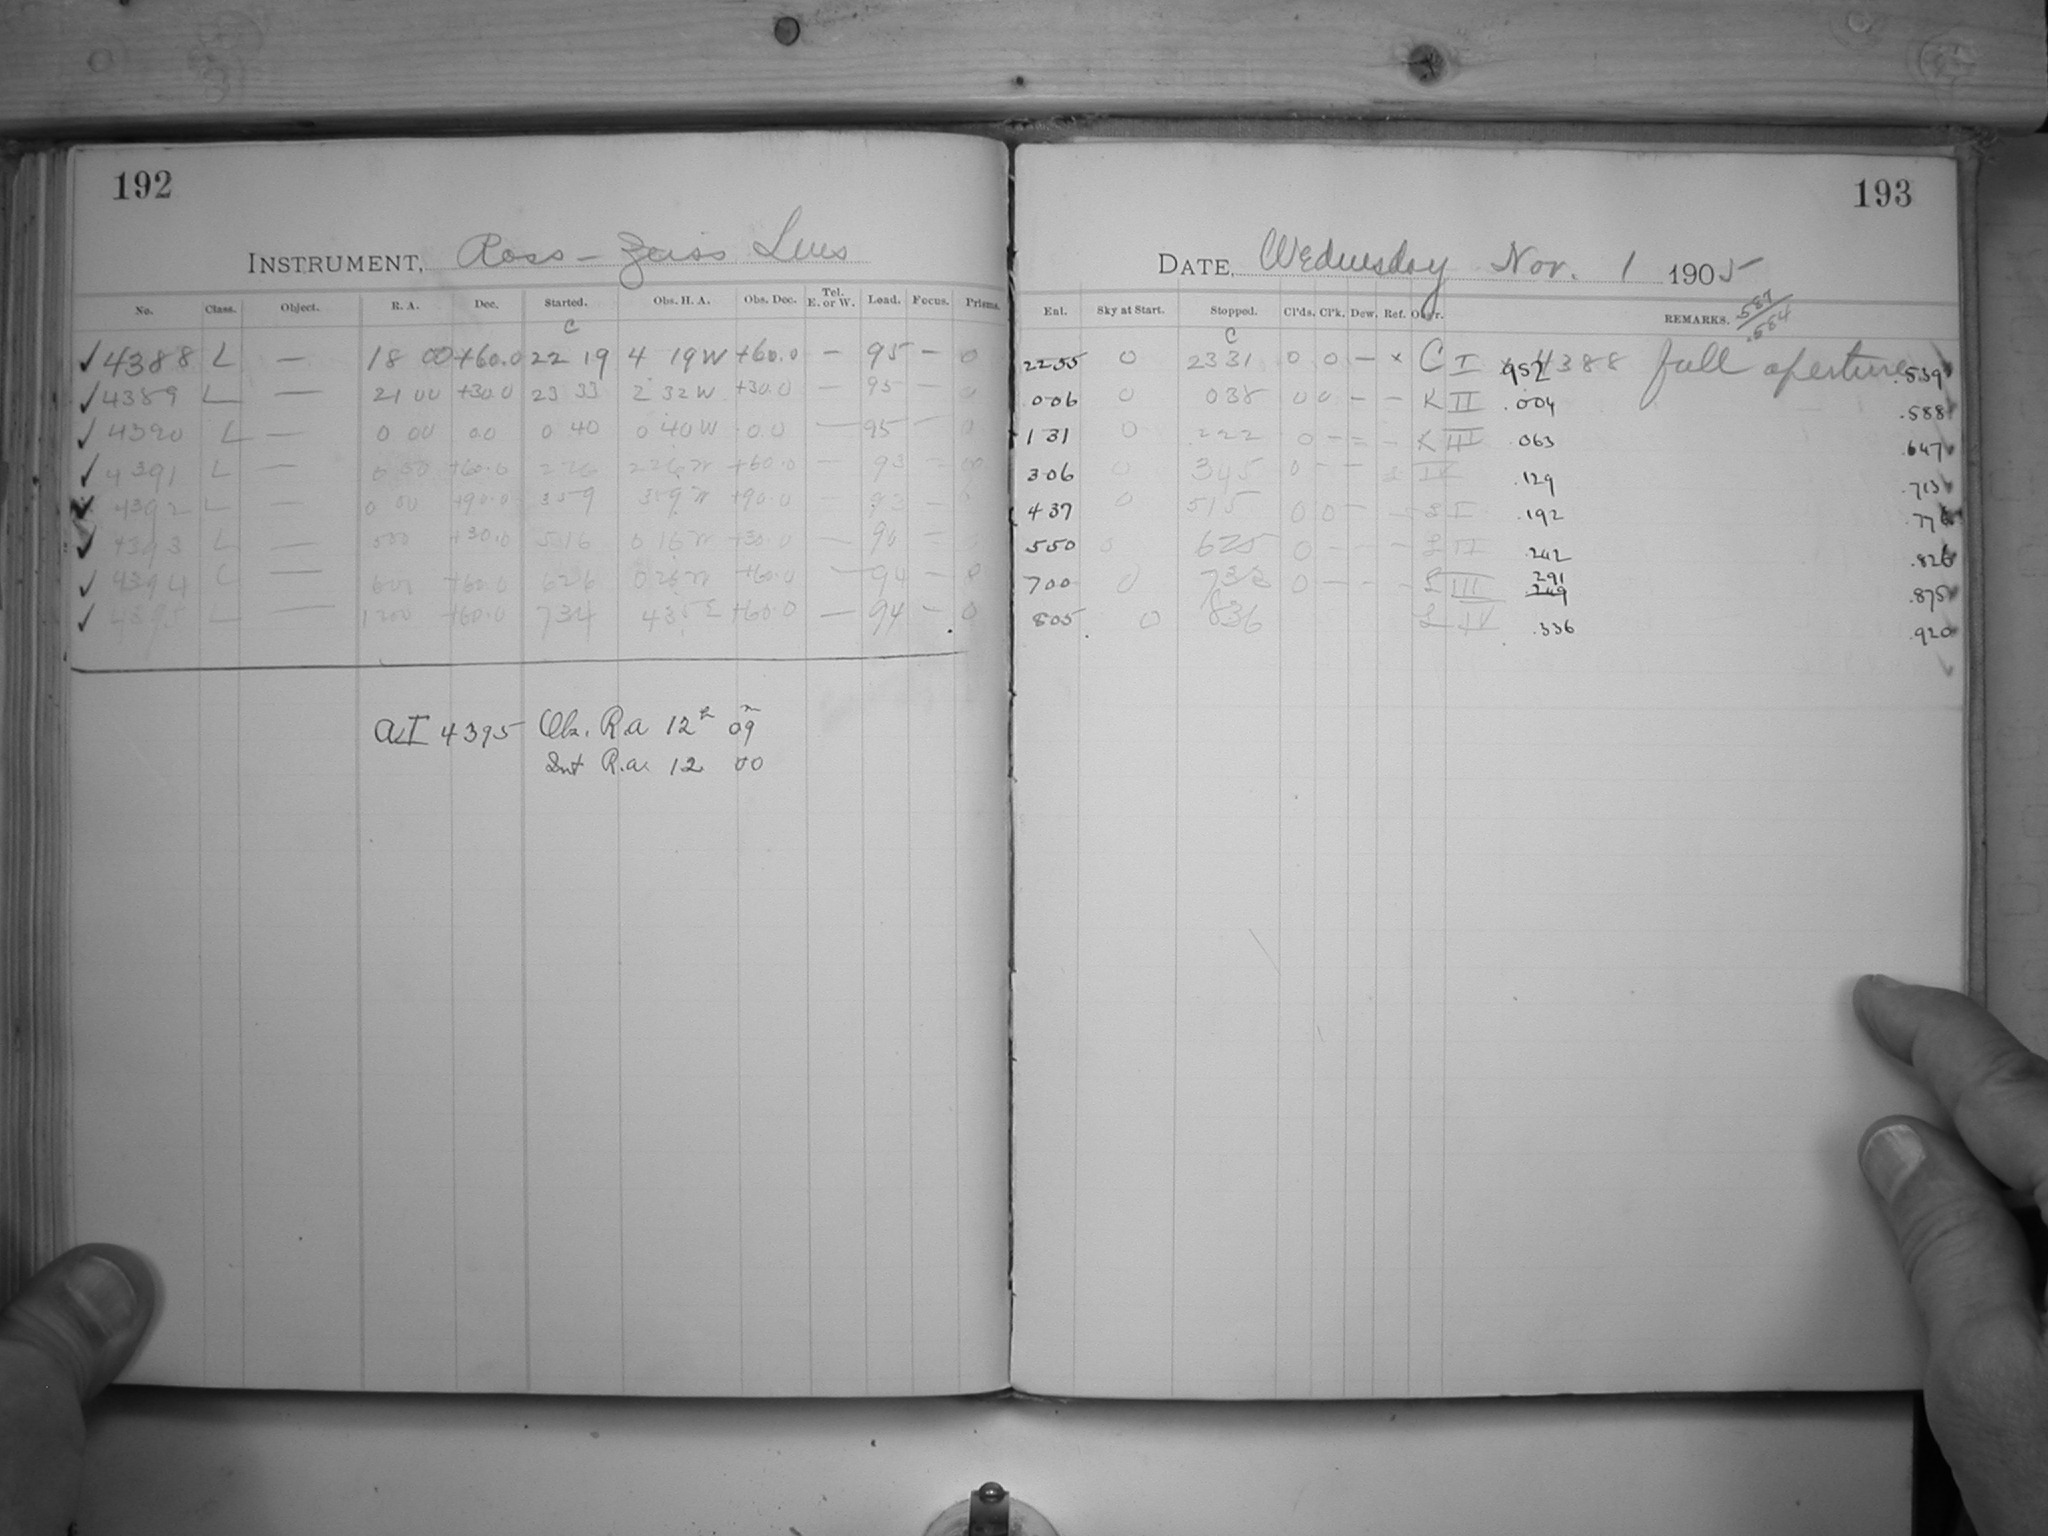 192
INSTRUMENT, Ross-Zeiss Lens
No. Class. Object. R. A. Dec. Started. Obs. H. A. Obs. Dec. Tel. E. or W. Load. Focus. Prisms.
C
✓ 4388 L — 18 00 +60.0 22 19 4 19 W +60.0 — 95 — 0
✓ 4389 L — 21 00 +30.0 23 33 2 32 W +30.0 — 95 — 0
✓ 4390 L — 0 00 0.0 0 40 0 40 W 0.0 — 95 —
✓ 4391 L — +60.0 226 226 W +60.0 — 93 —
4392 L — 0 00 +90.0 359 359 W +90.0 — 93 —
✓ 4393 L — +30.0 516 0 16 W +30.0 — 94 —
✓ 4394 L — 600 +60.0 626 0 26 W +60.0 — 94 — 0
✓ 4395 L — 1200 +60.0 734 435 E +60.0 — 94 — 0
4395 Obs. R.a 12h 09m
Int R.a. 12 00
193
DATE, Wednesday Nov. 1 1905
Ent. Sky at Start. Stopped. Cl'ds. Cl'k. Dew. Ref. Obs'r. REMARKS. .584
C
2255 0 2331 0 0 — x C I .952 4388 full aperture .539
006 0 038 0 0 — — K II .004 .588
131 0 222 0 — — — K III .063 .647
306 0 345 0 — — IV .129 .713
437 0 515 0 0 — — L I .192 .776
550 0 625 0 — — — L II .242 .826
700 0 0 — — — L III .291 .875
805 0 836 L IV .336 .920